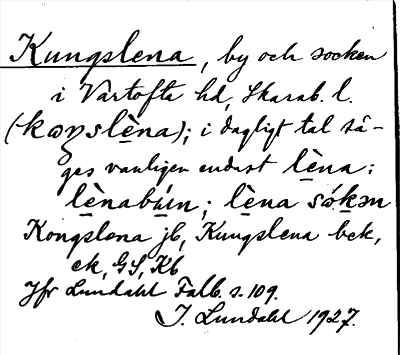 Kungslena, by och socken
i Vartofta hd, Skarab. l.
(koŋslèna); i dagligt tal sä-
ges vanligen endast lèna:
lènabýin; lèna sókən
Kongslena jb, Kungslena bck,
ek, GS, Kb
Jfr Lundahl Falb. s. 109.
I. Lundahl 1927.